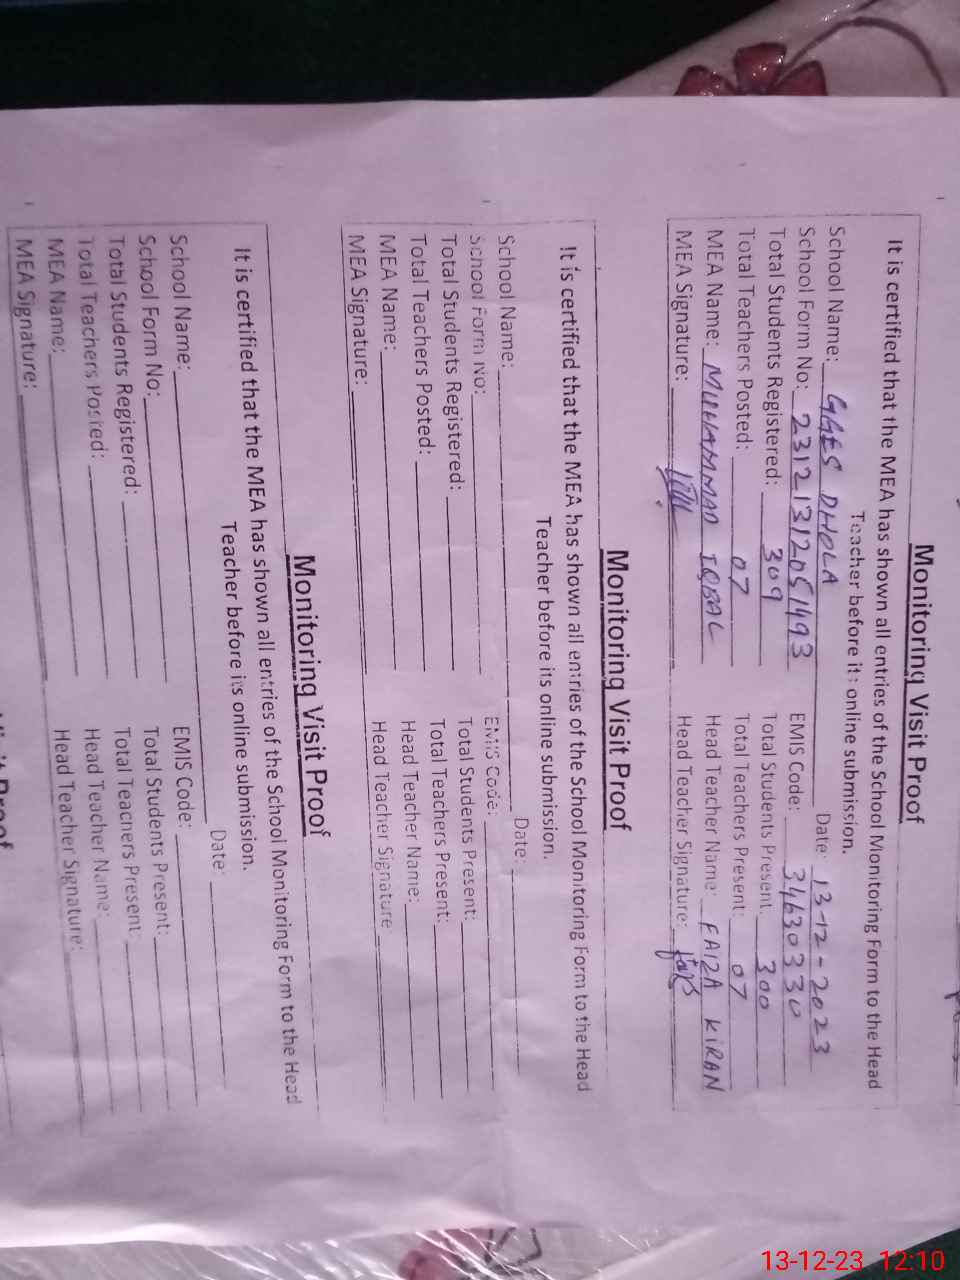 Monitoring Visit Proof
It is certified that the MEA has shown all entries of the School Monitoring Form to the Head
Teacher before its online submission.
School Name: GGES DHOLA Date: 13-12-2023
School Form No: 23121312051493 EMIS Code: 34630330
Total Students Registered: 309 Total Students Present: 300
Total Teachers Posted: 07 Total Teachers Present: 07
MEA Name: MUHAMMAD IQBAL Head Teacher Name: FAIZA KIRAN
MEA Signature: Head Teacher Signature:
Monitoring Visit Proof
It is certified that the MEA has shown all entries of the School Monitoring Form to the Head
Teacher before its online submission.
School Name: Date:
School Form No: EMIS Code:
Total Students Registered: Total Students Present:
Total Teachers Posted: Total Teachers Present:
MEA Name: Head Teacher Name:
MEA Signature: Head Teacher Signature
Monitoring Visit Proof
It is certified that the MEA has shown all entries of the School Monitoring Form to the Head
Teacher before its online submission.
School Name: Date:
School Form No: EMIS Code:
Total Students Registered: Total Students Present:
Total Teachers Posted: Total Teachers Present:
MEA Name: Head Teacher Name:
MEA Signature: Head Teacher Signature:
Proof
13-12-23 12:10